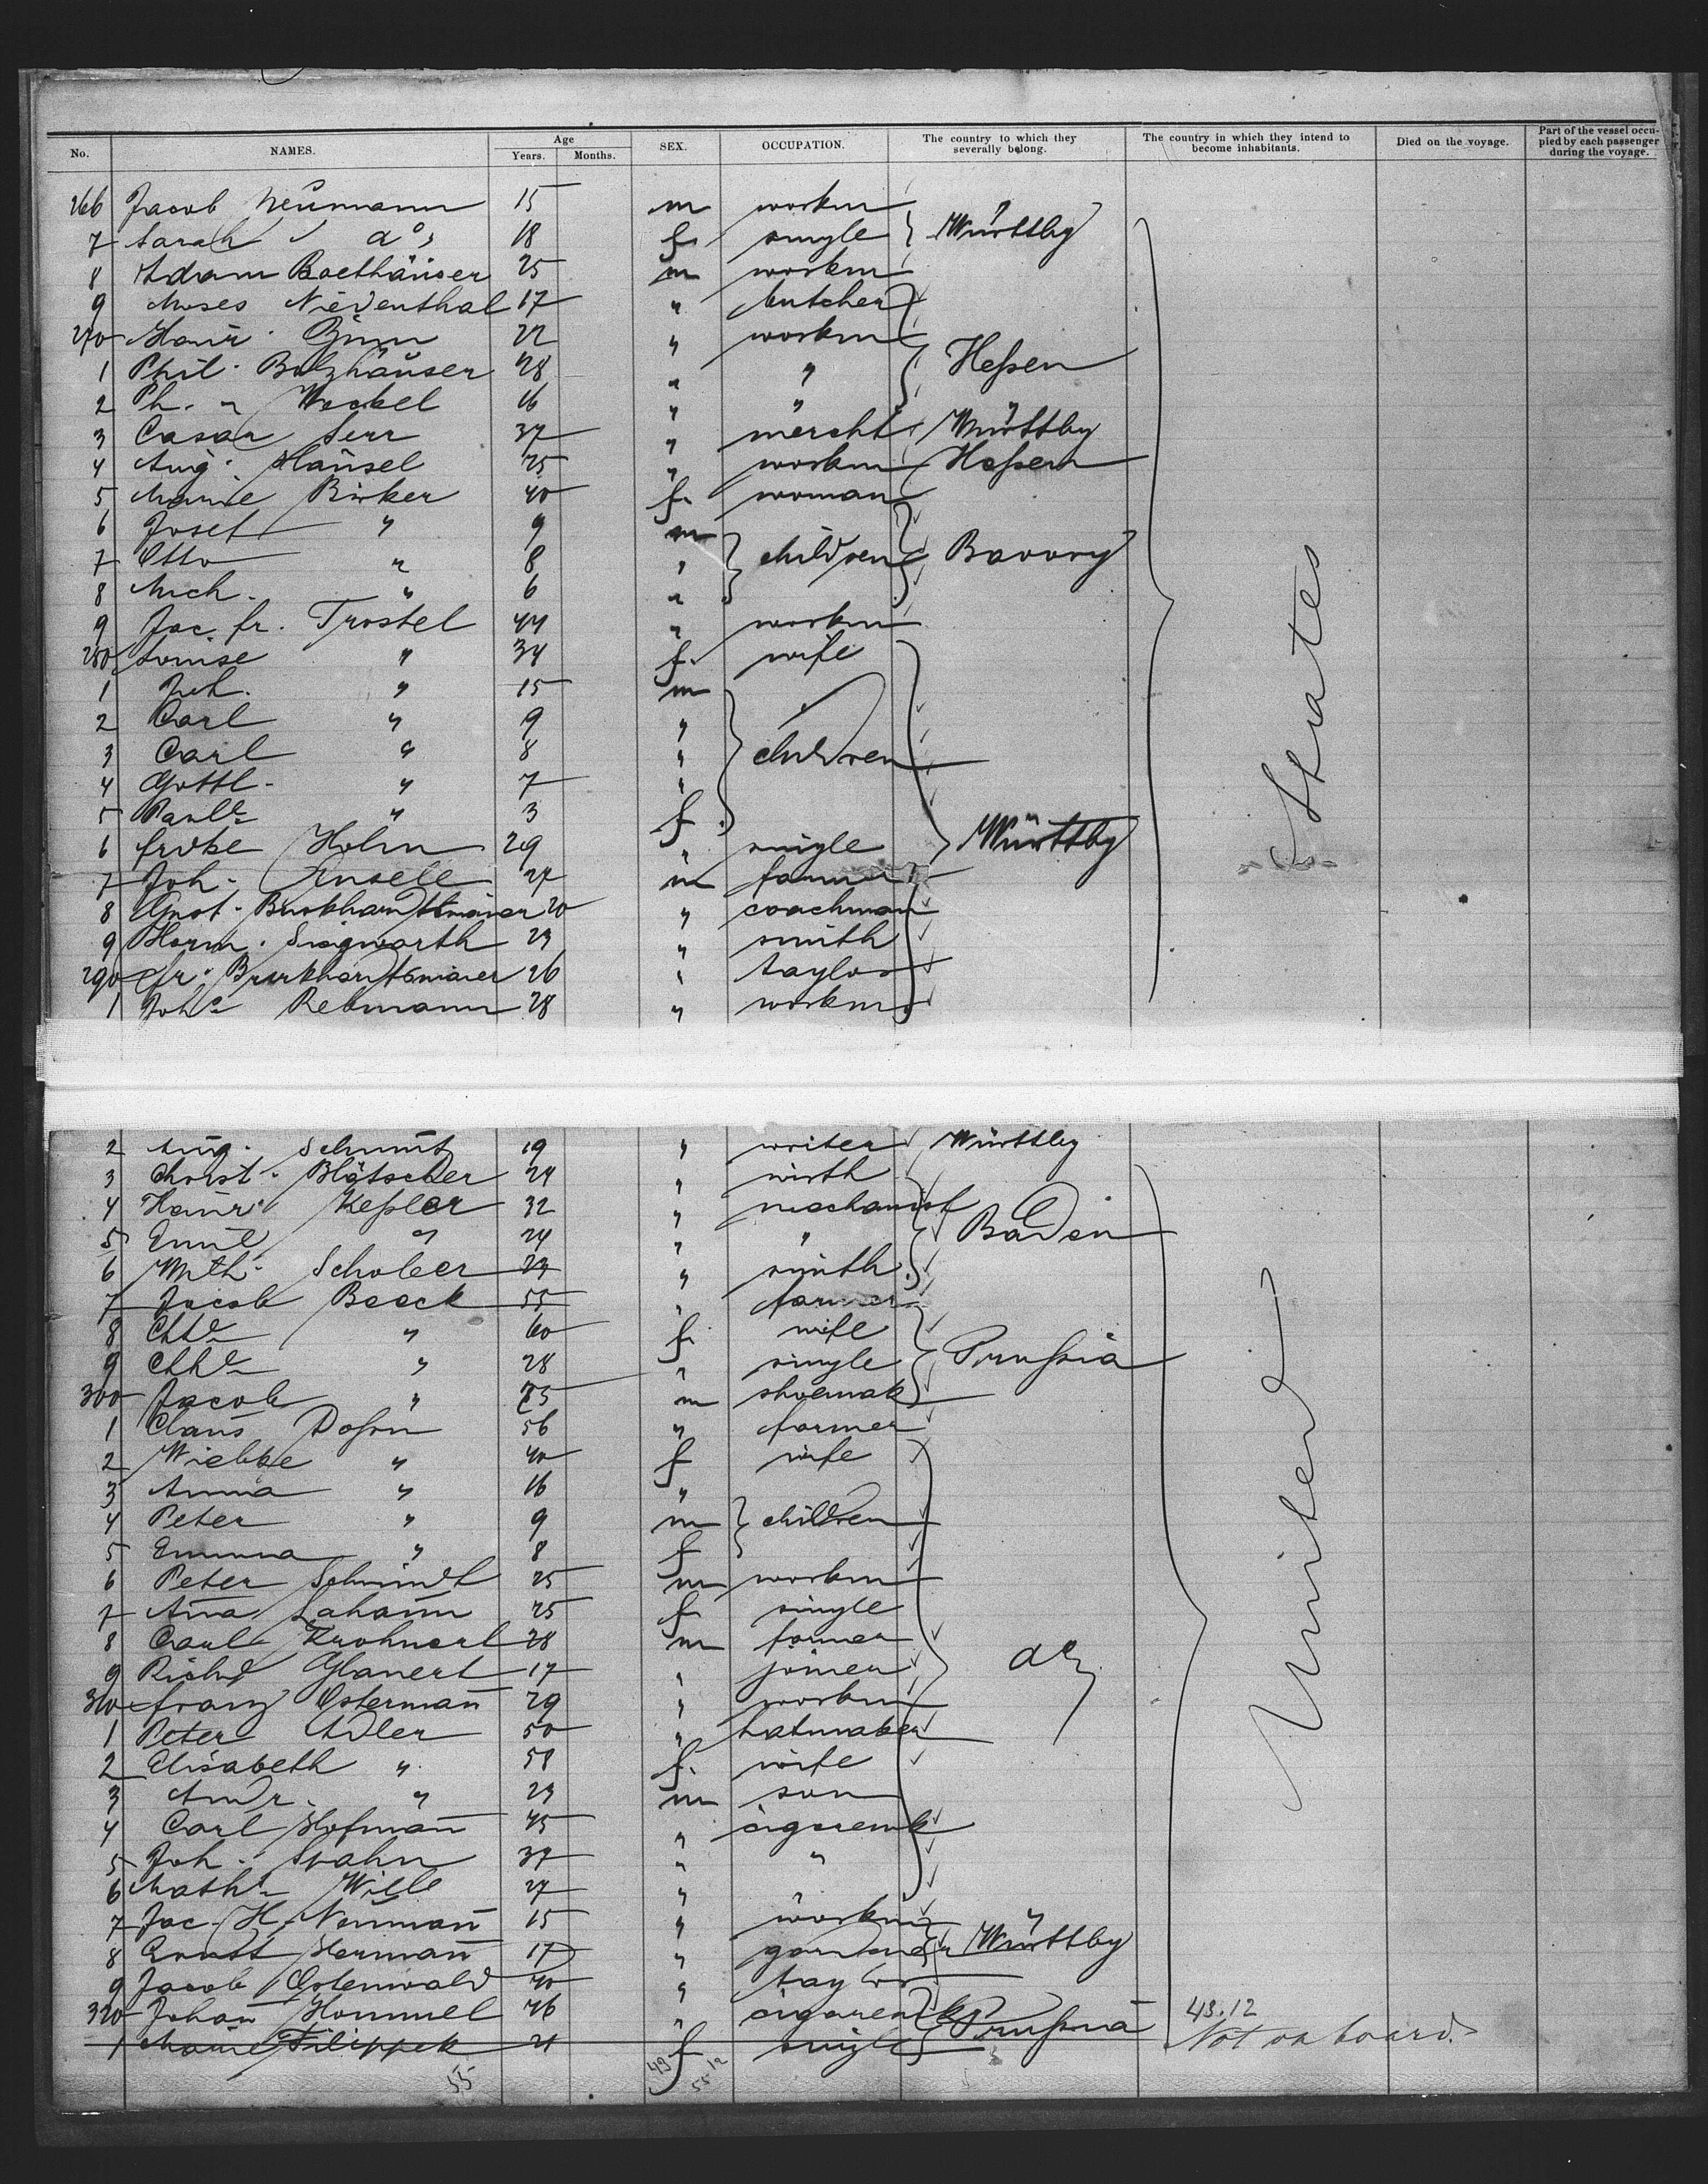 No. NAMES. Age Years. Months. SEX. OCCUPATION. The country to which they severally belong. The country in which they intend to become inhabitants. Died on the voyage. Part of the vessel occupied by each passenger during the voyage.
266 Jacob Neumann 15 m workm
7 Sarah do 18 f. single Württbg
8 Adam Boethäuser 25 m workm
9 Moses Niedenthal 17 " butcher
270 Heinr. 22 " workm
1 Phil. Bolzhäuser 28 " " Heßen
2 Ph. Weckel 16 " "
3 Casar Serr 37 " mercht Württbg
4 Aug. Hänsel 25 " workm Heßen
5 Marie Birker 40 f. woman
6 Josef " 9 m
7 Otto " 8 " children Bavory
8 Mich. " 6 "
9 Jac. fr. Trostel 44 " workm
280 Louise " 34 f. wife
1 Joh. " 15 m
2 Carl " 9 "
3 Carl " 8 " children
4 Gottl. " 7 "
5 Paule " 3 f.
6 frdke Holm 29 " single Württbg
7 Joh. Ansele 27 m farmer
8 Gust. Burkhardtsmaier 20 " coachman
9 Herm. Siegwarth 23 " smith
290 fr. Burkhardtsmaier 26 " taylor
1 Johs Rebmann 28 " workm
States
2 Aug. Schmut 19 " writer Württbg
3 Christ. Blötscher 24 " wirth
4 Heinr. Keßler 32 " mechanist
5 Emil " 24 " " Baden
6 Wilh. Scholeer 23 " smith
7 Jacob Beeck 55 " farmer
8 Chte " 60 f. wife
9 Chte " 28 " single Prußia
300 Jacob " 25 m shoemak
1 Claus Doßon 56 " farmer
2 Wiebke " 40 f wife
3 Anna " 16 "
4 Peter " 9 m children
5 Emma " 8 f
6 Peter Schmidt 25 m workm
7 Ana Lahann 25 f single
8 Carl Krohnert 28 m farmer
9 Richd Glanert 17 " joiner do
310 franz Osterman 29 " workm
1 Peter Adler 50 " hatmaker
2 Elisabeth " 58 f. wife
3 Andr. " 23 m son
4 Carl Hofman 45 " cigaremk
5 Joh. Spahn 37 " "
6 Mathe Wille 27 "
7 Jac. H. Neuman 15 " workm
8 Ernst Herman 17 " gardener Württbg
9 Jacob Ostenwald 40 " taylor
320 Johan Hommel 46 " cigarenmk Prußia 43.12
1 Marie Filippek 21 f single Not on board.
United
55 49 55 12